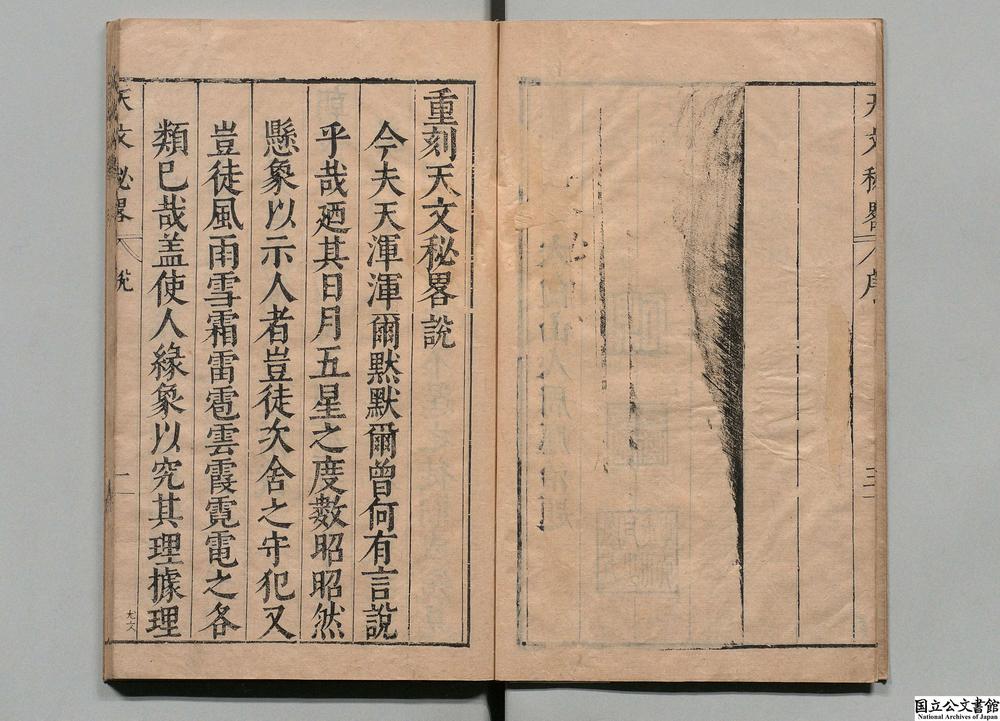 天文秘畧
序
三
重刻天文秘畧說
今夫天渾渾爾默默爾曾何有言說
乎哉廼其日月五星之度數昭昭然
懸象以示人者豈徒次舍之守犯又
豈徒風雨雪霜雷雹雲霞霓電之各
類已哉盖使人緣象以究其理據理
天文秘畧
說
一
国立公文書館
National Archives of Japan